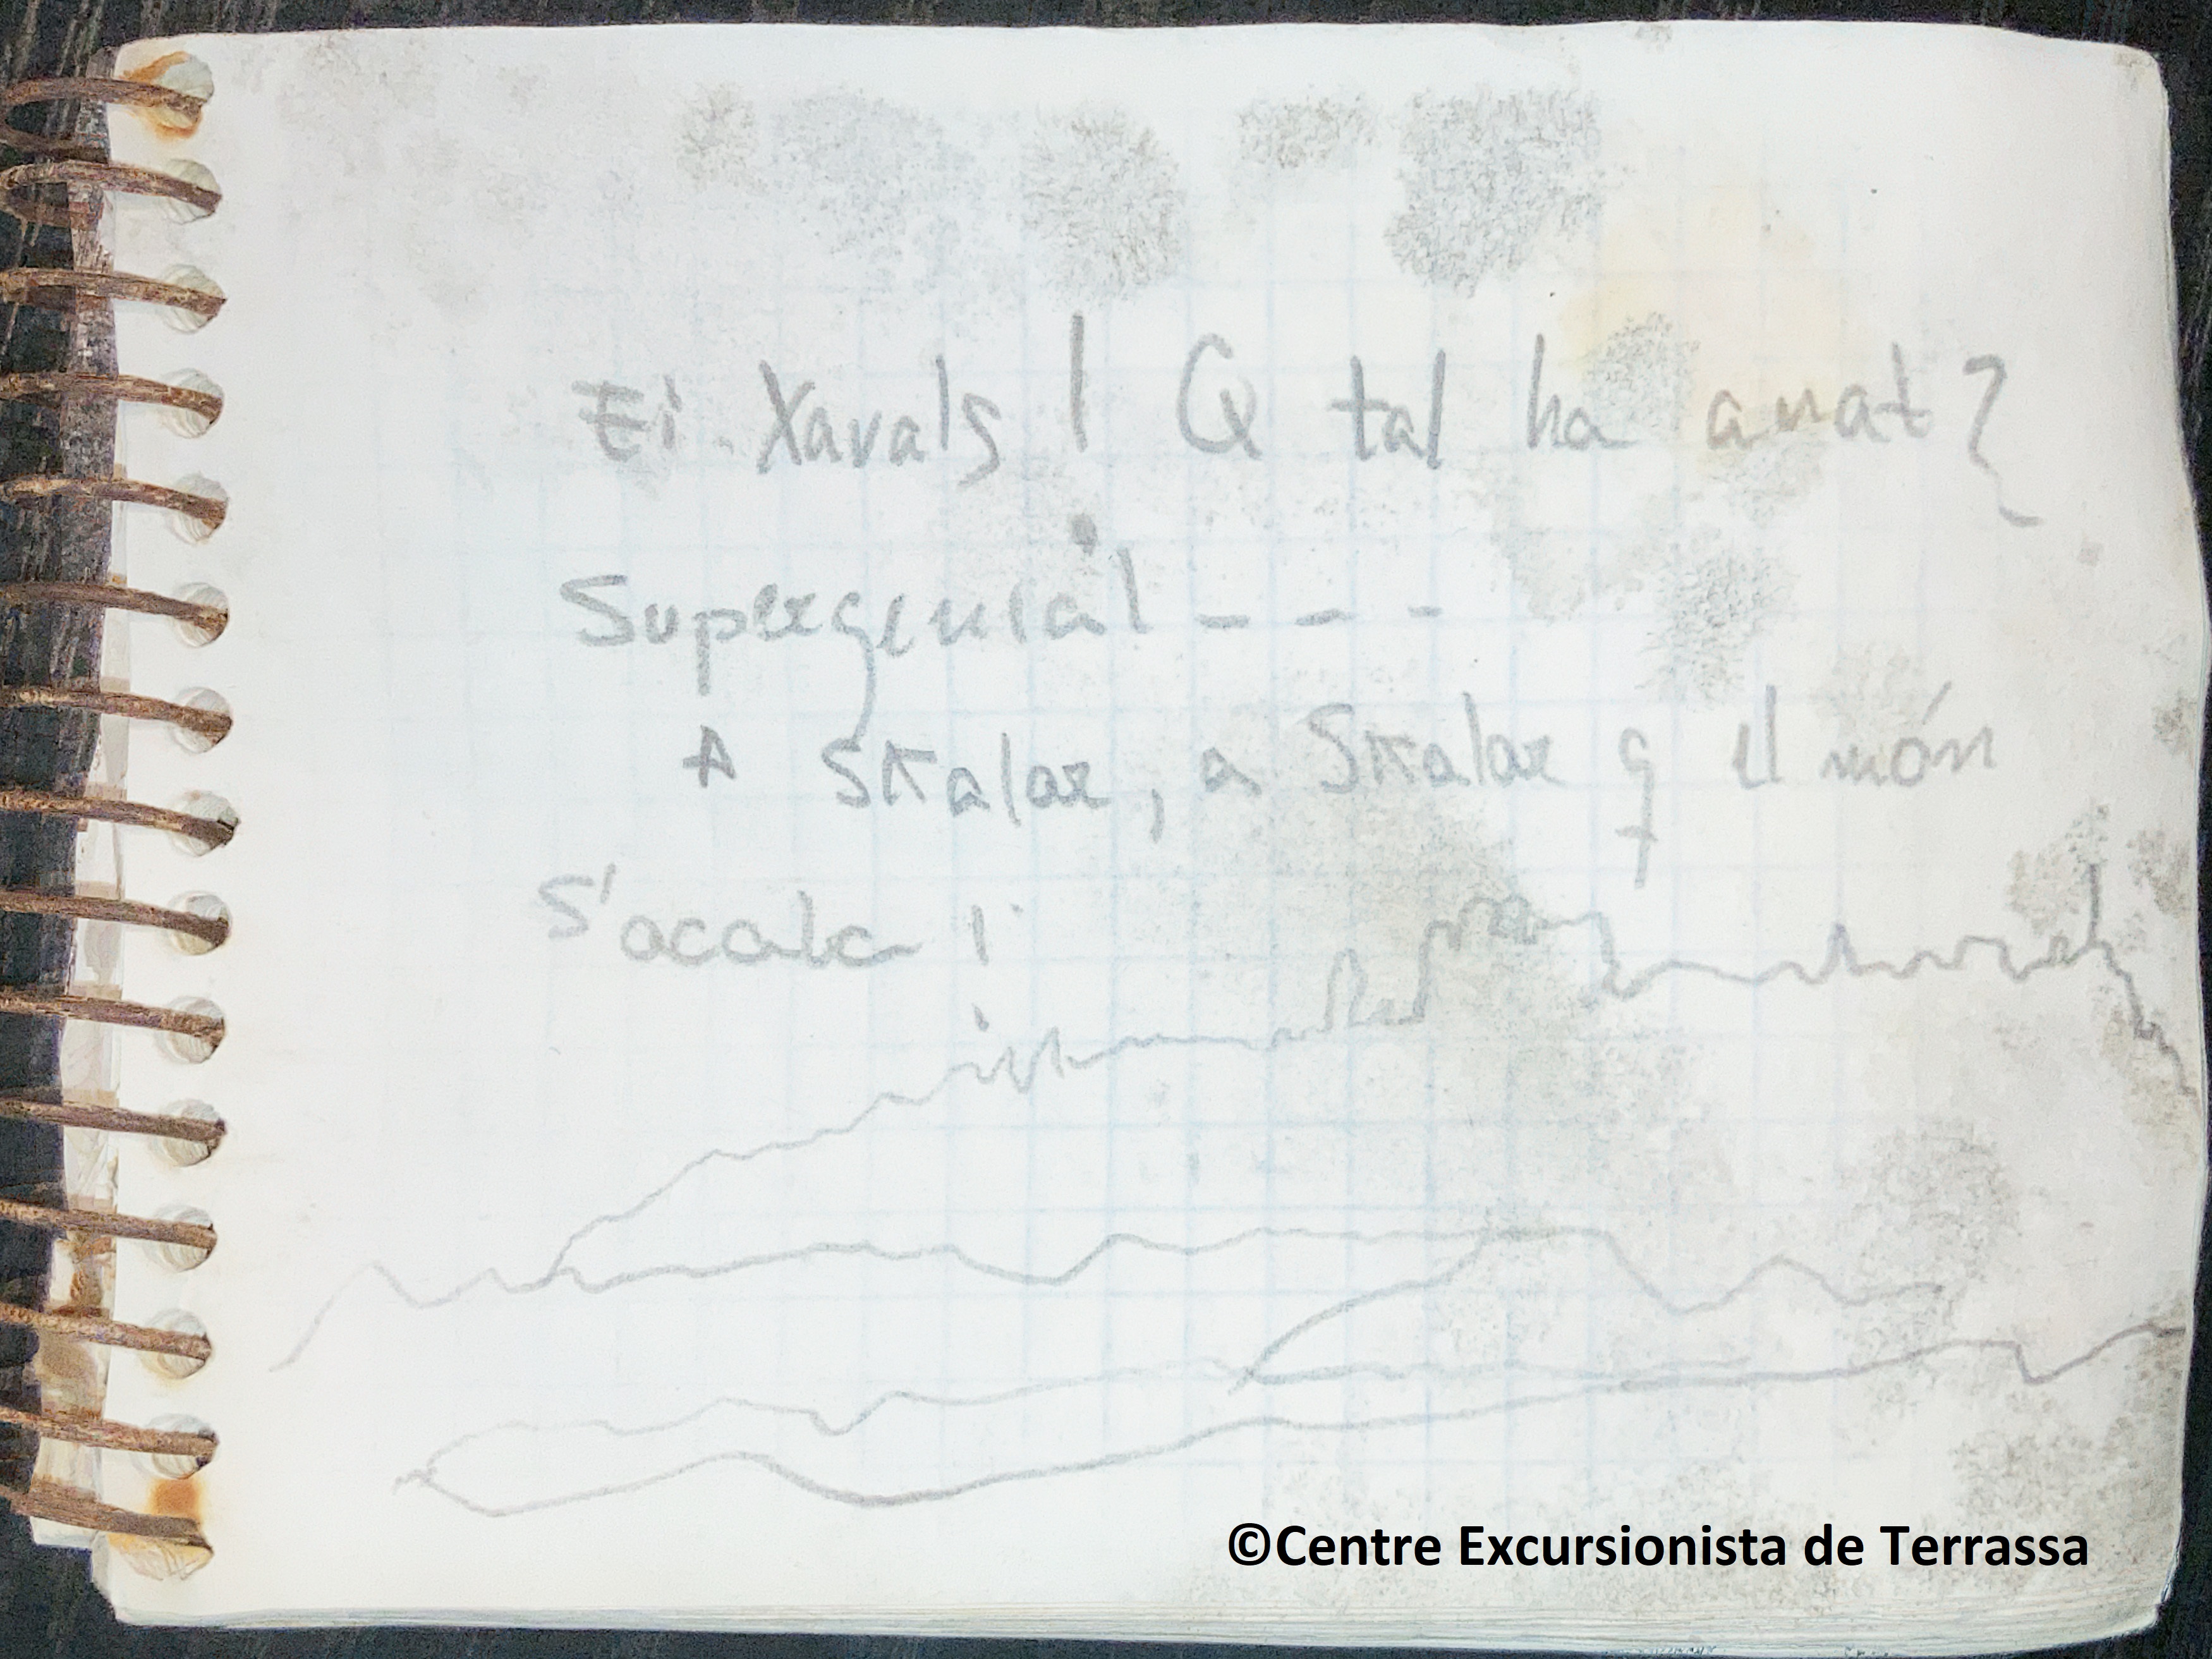 Ei Xavals! Q tal ha anat?
Supergenial - - -
A SKalar, a SKalar q el món
S'acaba!
©Centre Excursionista de Terrassa